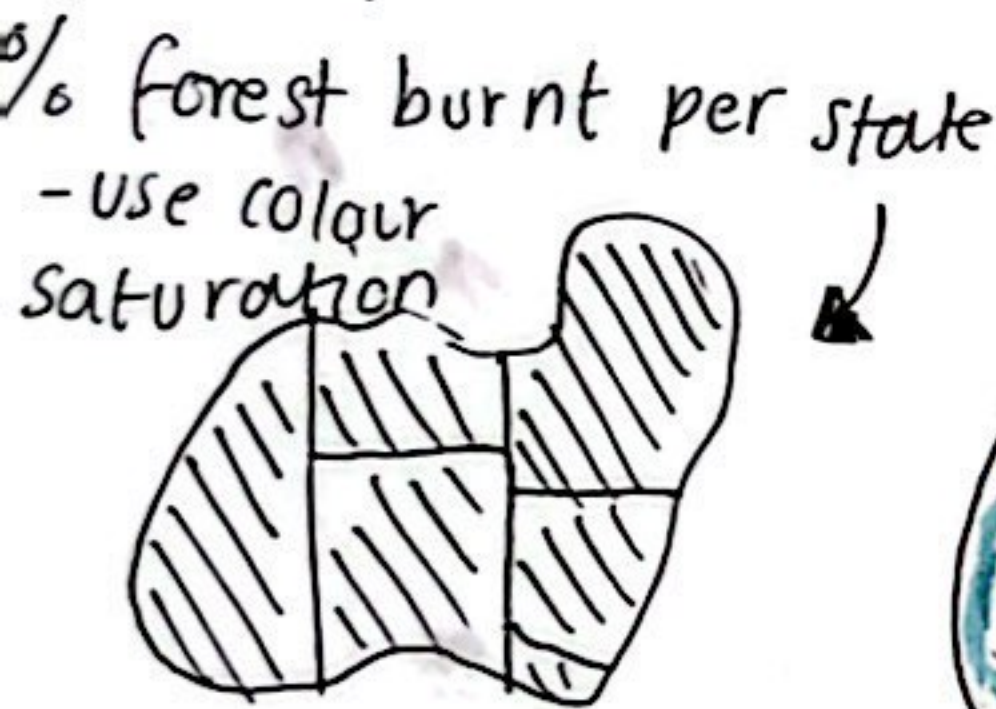 % forest burnt per state
- use colour
saturation